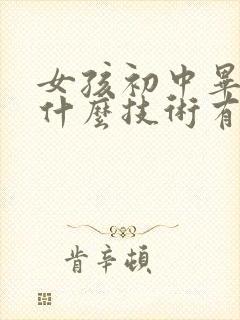 女孩初中畢
什麼技術有
肯辛頓